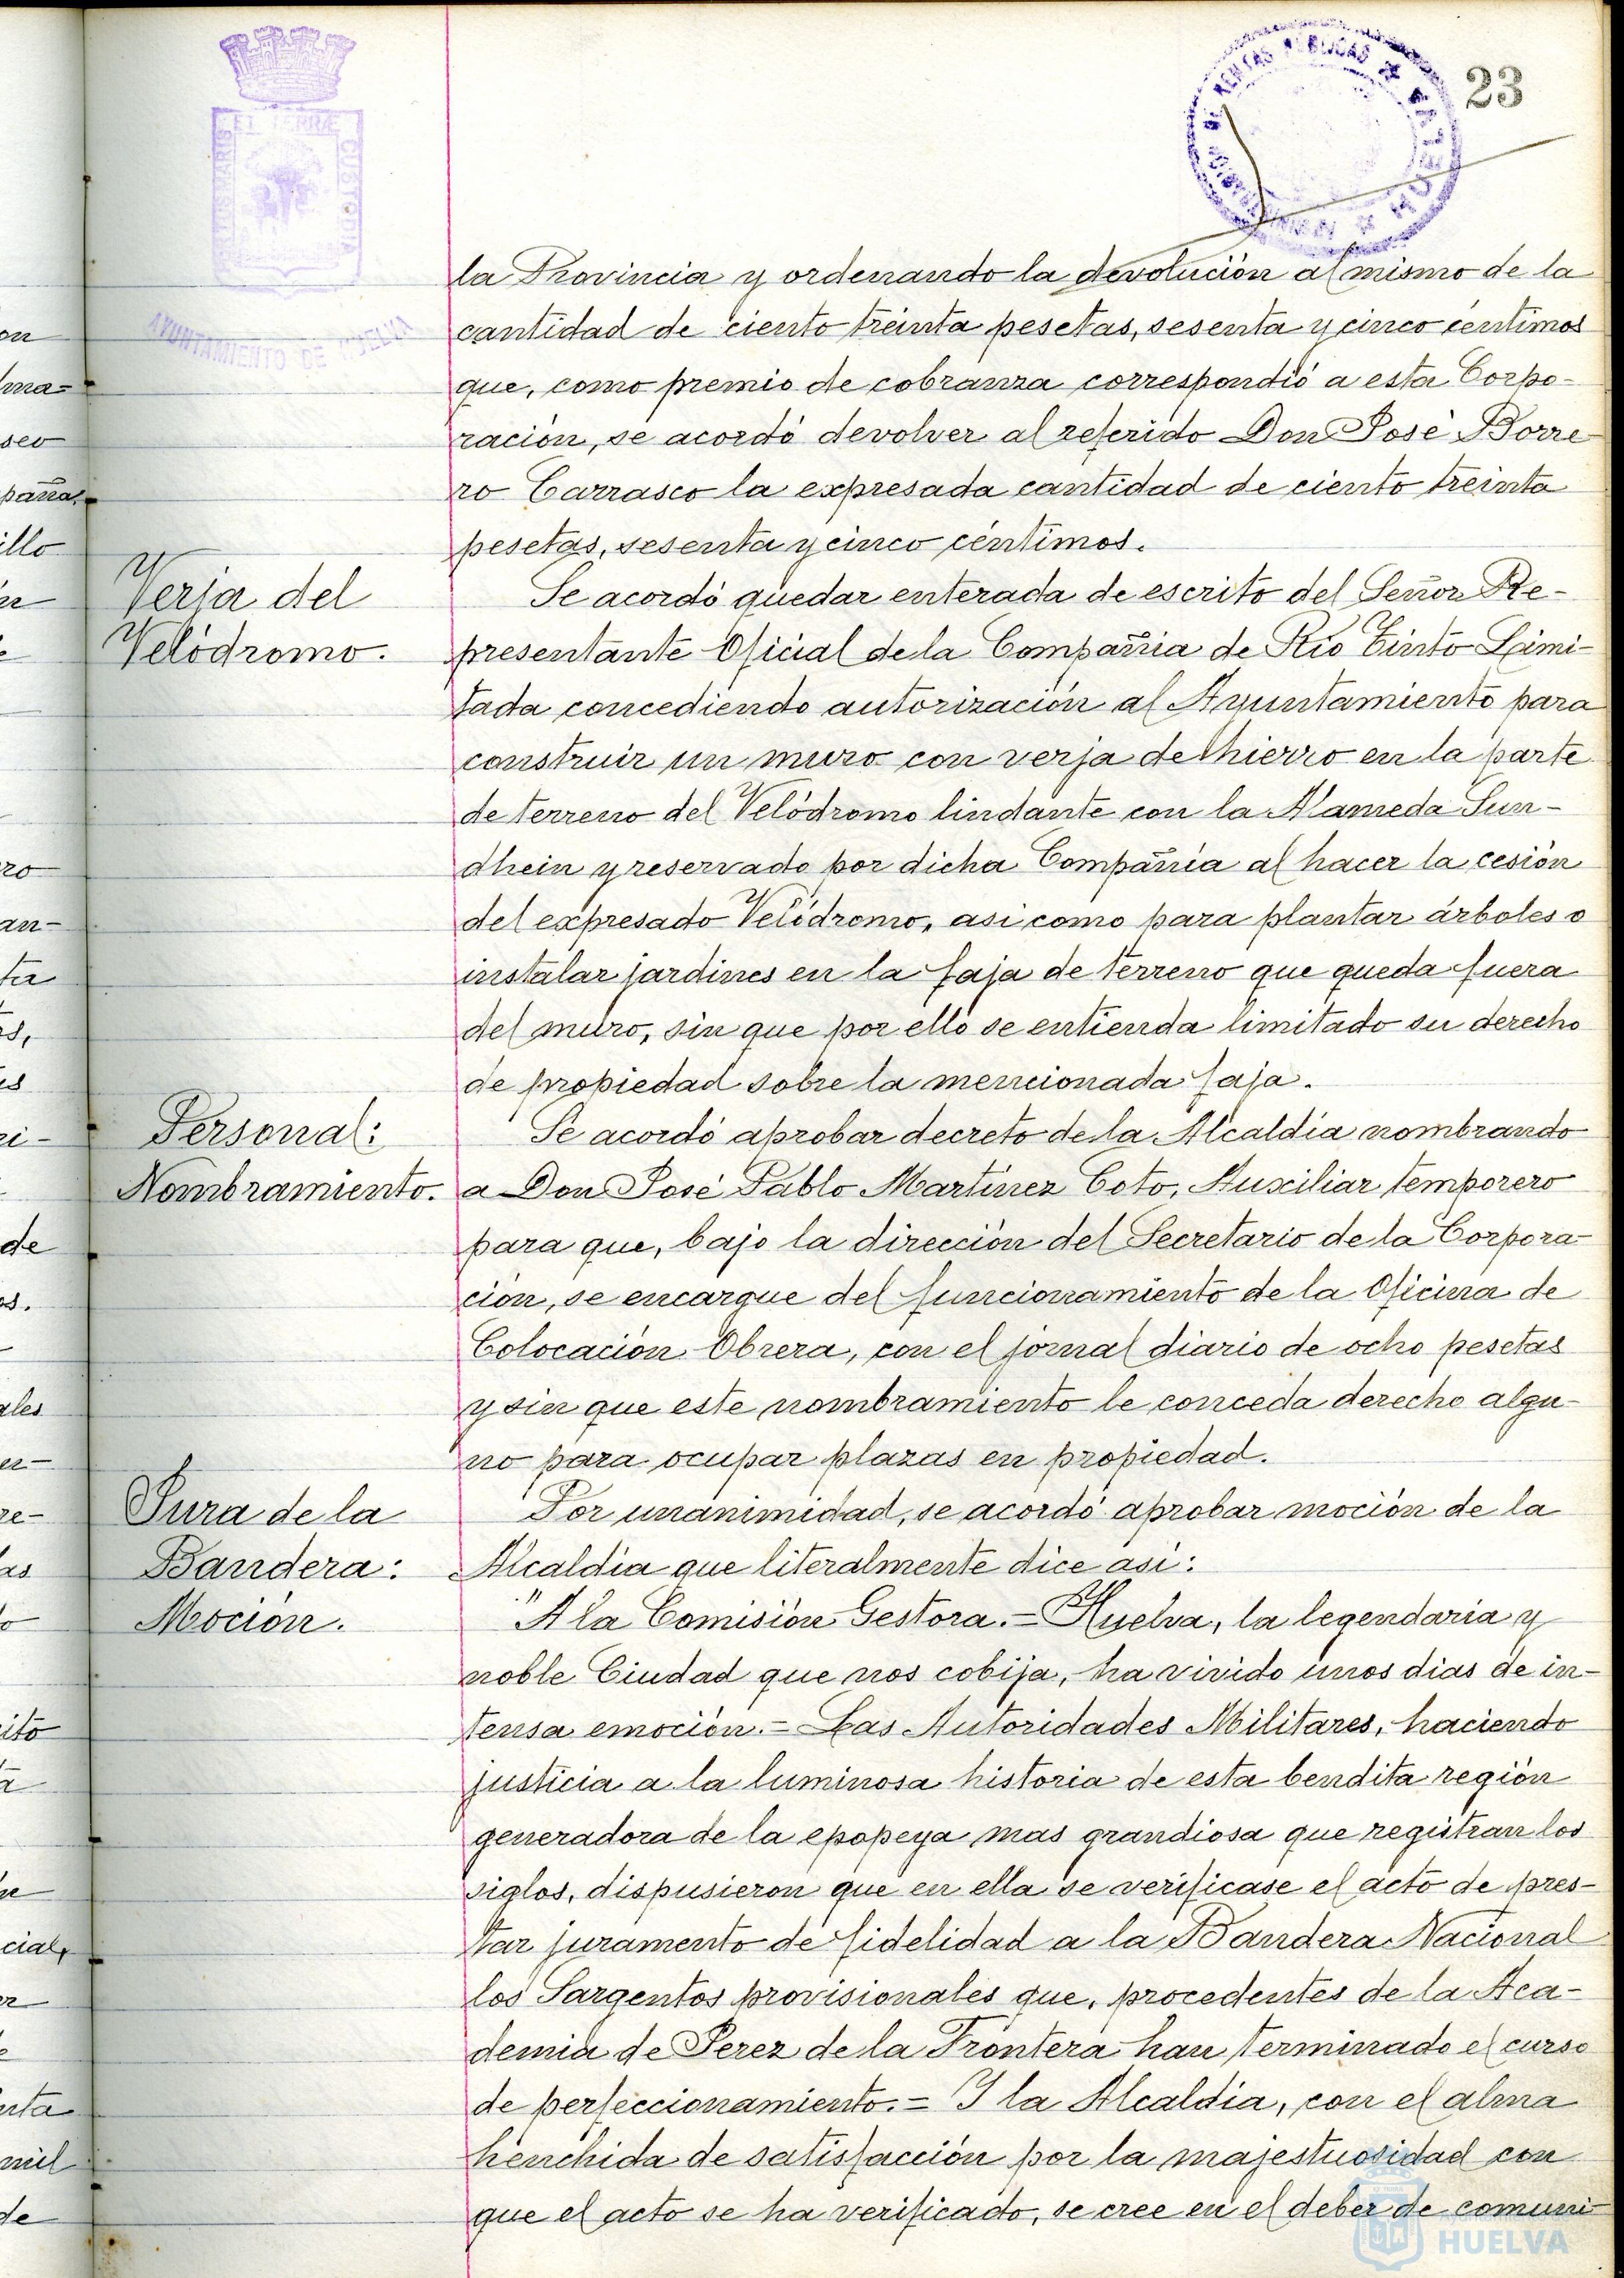 23
PORTUS MARIS ET TERRÆ CUSTODIA
AYUNTAMIENTO DE HUELVA
RENTAS PUBLICAS
HUELVA
la Provincia y ordenando la devolución al mismo de la
cantidad de ciento treinta pesetas, sesenta y cinco céntimos
que, como premio de cobranza correspondió a esta Corpo-
ración, se acordó devolver al referido Don José Borre
ro Carrasco la expresada cantidad de ciento treinta
pesetas, sesenta y cinco céntimos.
Verja del
Velódromo.
Se acordó quedar enterada de escrito del Señor Re-
presentante Oficial de la Compañia de Rio Tinto Limi-
tada concediendo autorización al Ayuntamiento para
construir un muro con verja de hierro en la parte
de terreno del Velódromo lindante con la Alameda Sun-
dhein y reservado por dicha Compañía al hacer la cesión
del expresado Velódromo, asi como para plantar árboles o
instalar jardines en la faja de terreno que queda fuera
del muro, sin que por ello se entienda limitado su derecho
de propiedad sobre la mencionada faja.
Personal:
Nombramiento.
Se acordó aprobar decreto de la Alcaldía nombrando
a Don José Pablo Martínez Coto, Auxiliar temporero
para que, bajo la dirección del Secretario de la Corpora-
ción, se encargue del funcionamiento de la Oficina de
Colocación Obrera, con el jornal diario de ocho pesetas
y sin que este nombramiento le conceda derecho algu-
no para ocupar plazas en propiedad.
Jura de la
Bandera:
Moción.
Por unanimidad, se acordó aprobar moción de la
Alcaldía que literalmente dice así:
"A la Comisión Gestora.= Huelva, la legendaria y
noble Ciudad que nos cobija, ha vivido unos dias de in-
tensa emoción.= Las Autoridades Militares, haciendo
justicia a la luminosa historia de esta bendita región
generadora de la epopeya mas grandiosa que registran los
siglos, dispusieron que en ella se verificase el acto de pres-
tar juramento de fidelidad a la Bandera Nacional
los Sargentos provisionales que, procedentes de la Aca-
demia de Jerez de la Frontera han terminado el curso
de perfeccionamiento.= Y la Alcaldía, con el alma
henchida de satisfacción por la majestuosidad con
que el acto se ha verificado, se cree en el deber de comuni
HUELVA